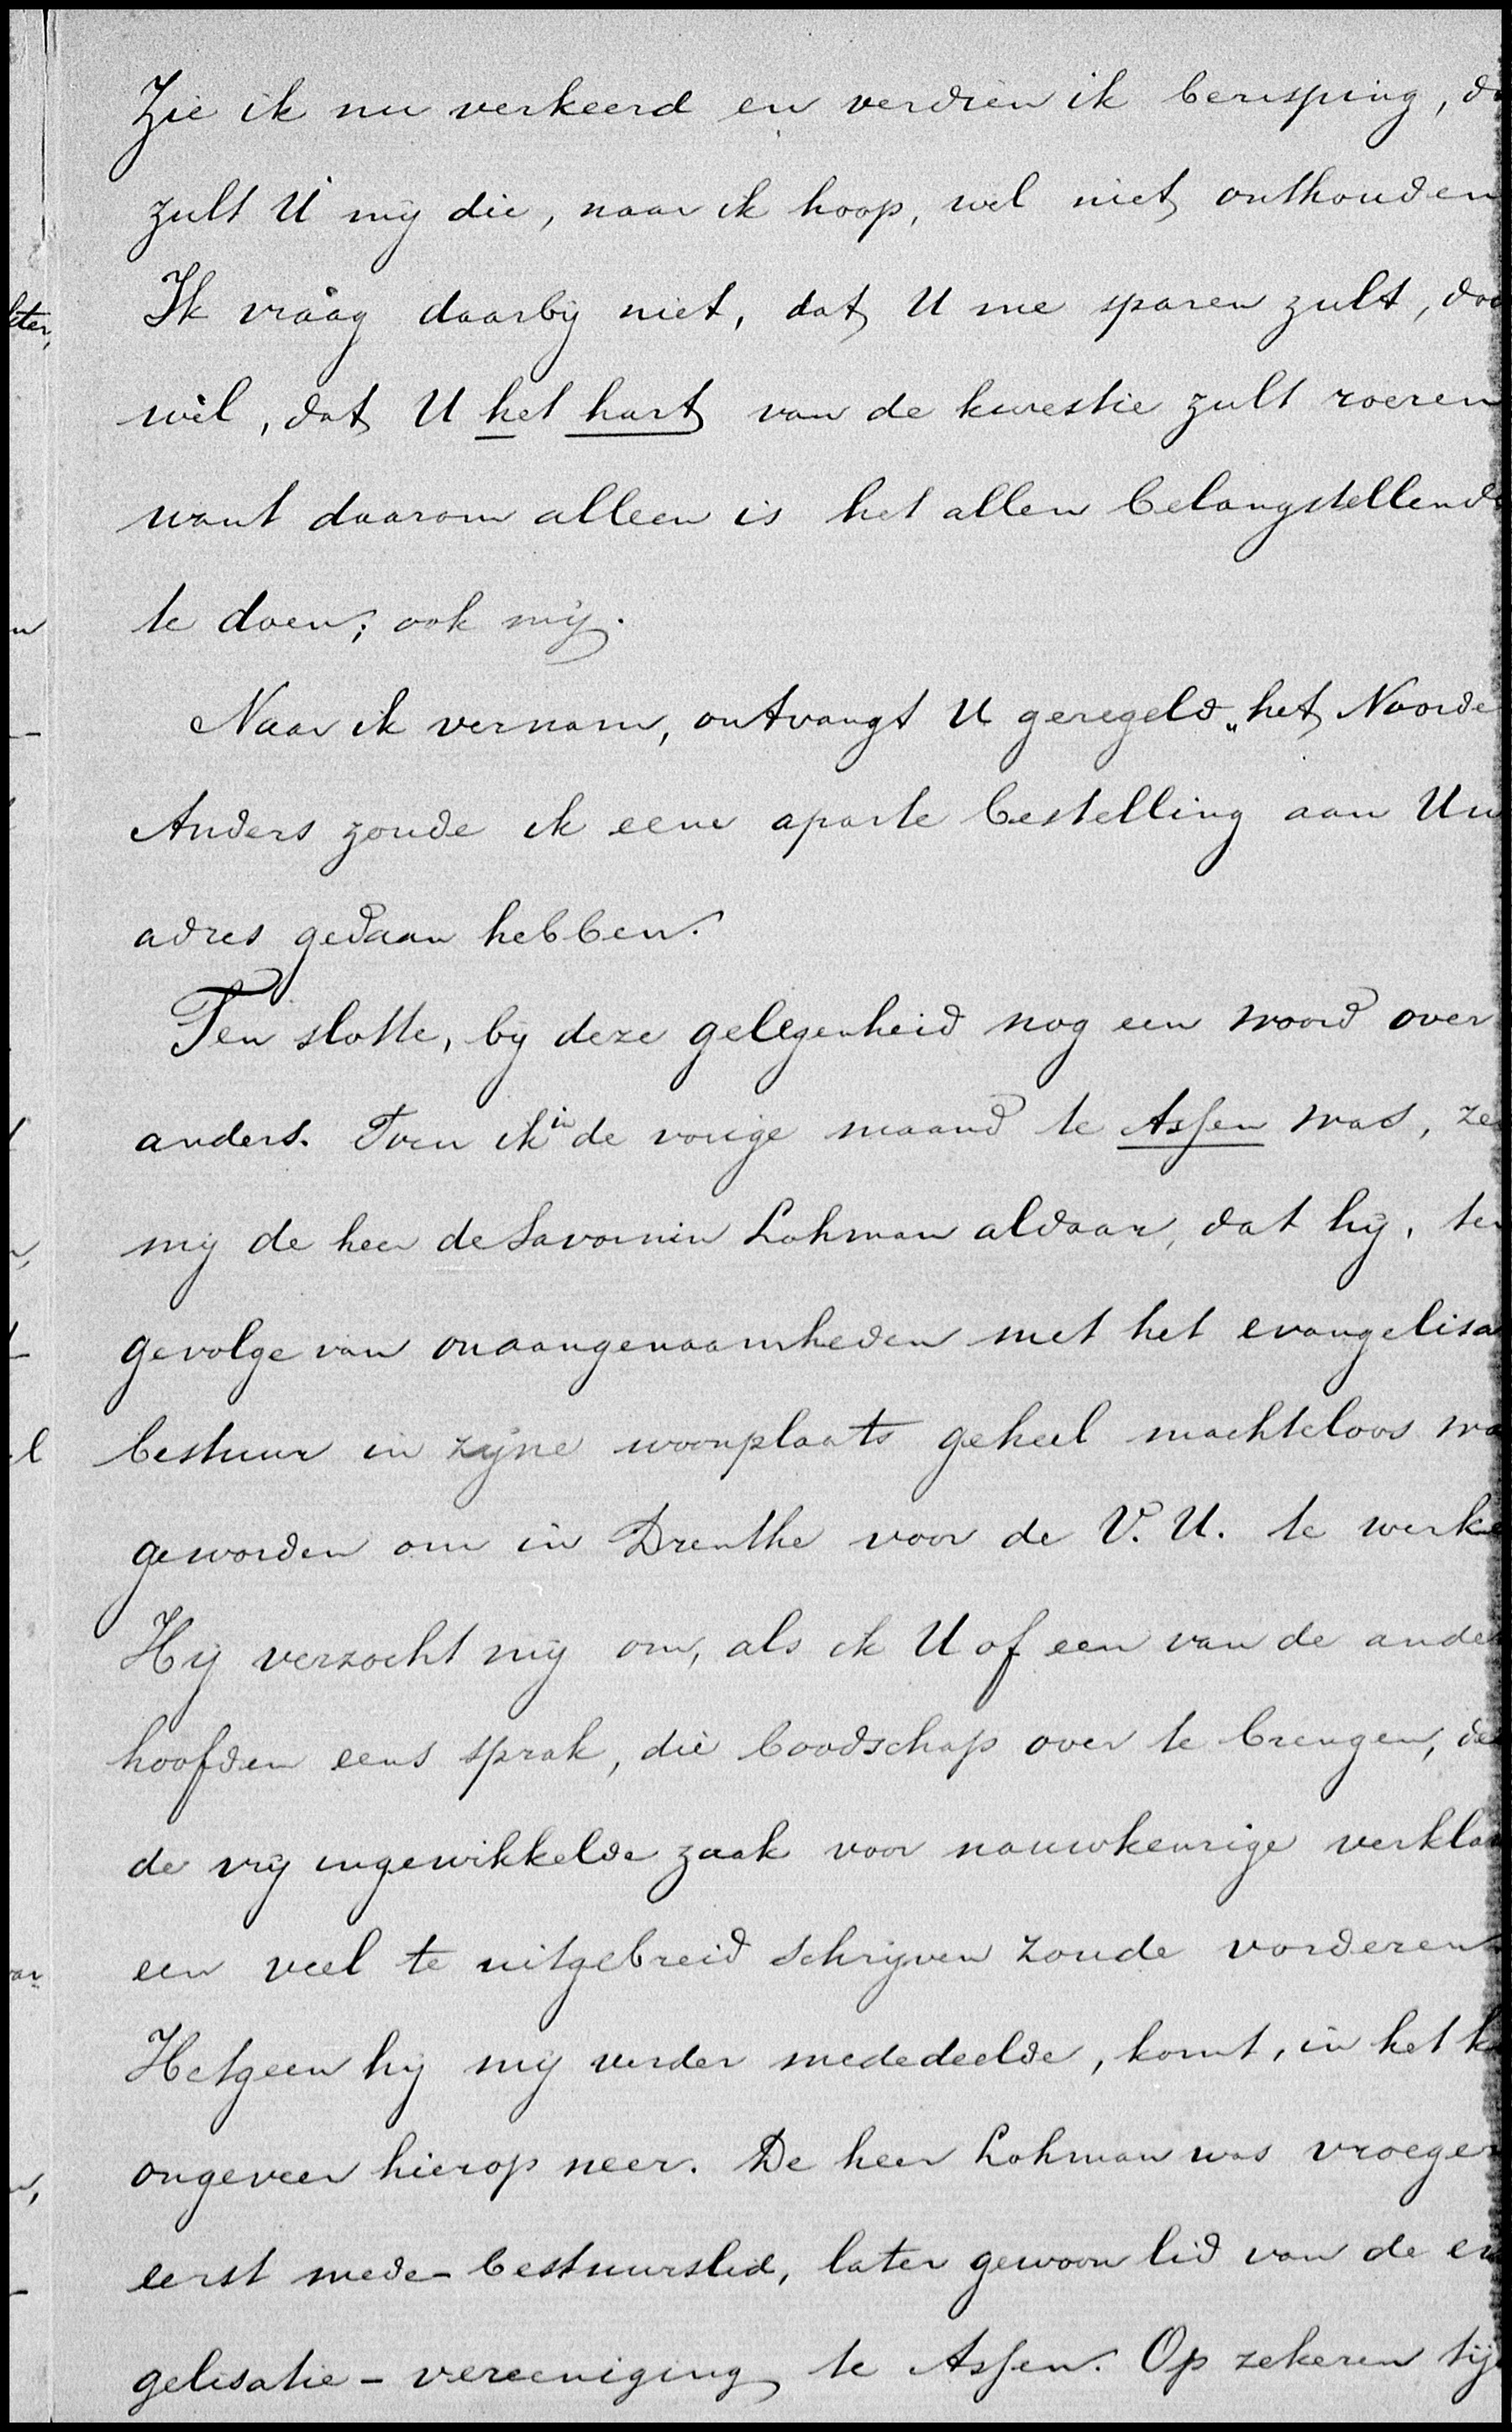 Zie ik nu verkeerd en verdien ik berisping, d
zult U mij die, naar ik hoop, wel niet onthouden
Ik vraag daarbij niet, dat U me sparen zult, doc
wil, dat U het hart van de kwestie zult roeren
want daarom alleen is het allen belangstellend
te doen; ook mij.
Naar ik vernam, ontvangt U geregeld „het Noorde
Anders zoude ik eene aparte bestelling aan Uw
adres gedaan hebben.
Ten slotte, bij deze gelegenheid nog een woord over
anders. Toen ik in de vorige maand te Assen was, ze
mij de heer de Savornin Lohman aldaar, dat hij, ten
gevolge van onaangenaamheden met het evangelisa
bestuur in zijne woonplaats geheel machteloos wa
geworden om in Drenthe voor de V. U. te werke
Hij verzocht mij om, als ik U of een van de ander
hoofden eens sprak, die boodschap over te brengen, de
de vrij ingewikkelde zaak voor nauwkeurige verklar
een veel te uitgebreid schrijven zoude vorderen
Hetgeen hij mij verder mededeelde, komt, in het k
ongeveer hierop neer. De heer Lohman was vroeger
eerst mede-bestuurslid, later gewoon lid van de ev
gelisatie-vereeniging te Assen. Op zekeren tij